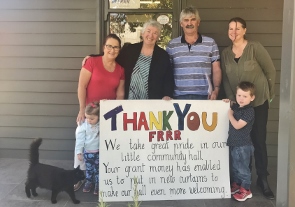 THANK YOU
FRRR
We take great pride in our
little community hall.
Your grant money has enabled
us to put in new curtains to
make our hall even more welcoming.